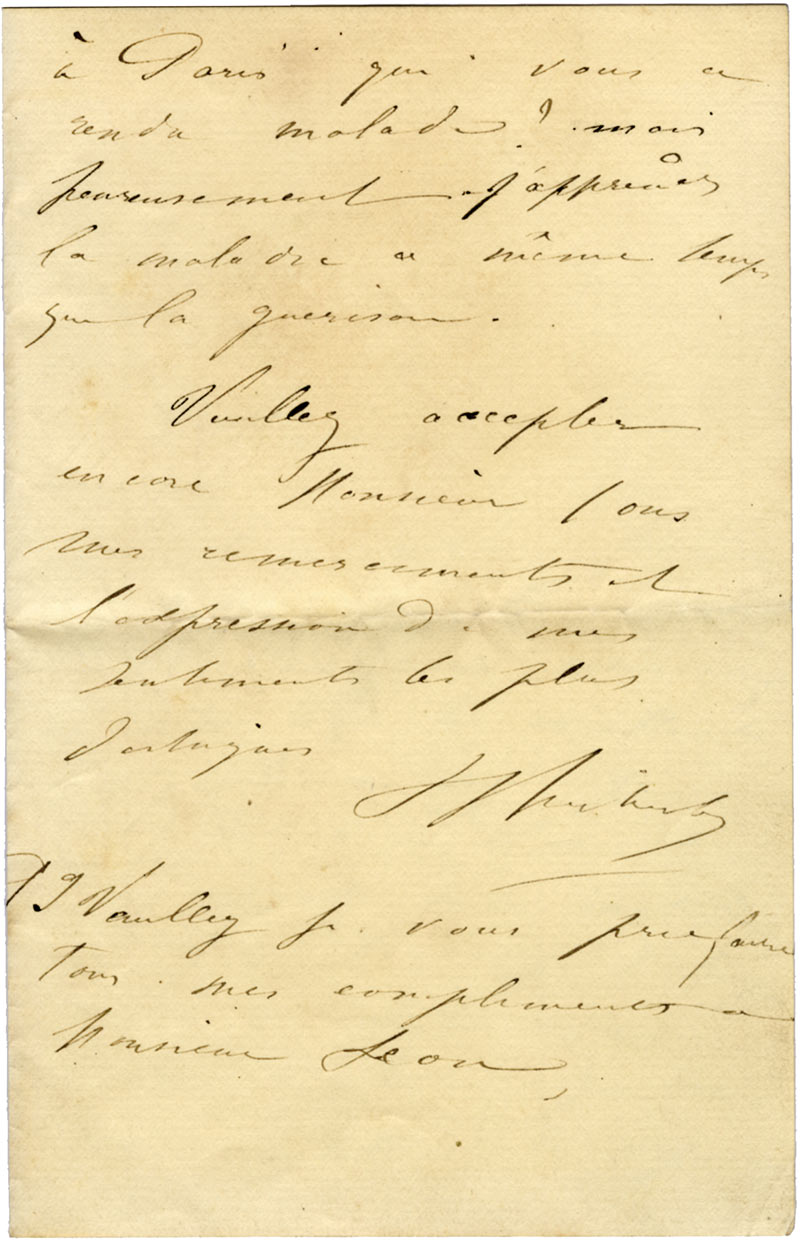 à Paris qui vous a
rendu malade ! mais
heureusement j'apprends
la maladie a même temps
que la guerison.
Veuillez accepter
encore Monsieur tous
mes remerciements et
l'expression de mes
sentiments les plus
distingués
PS Veuillez je vous prie faire
tous mes compliments a
Monsieur Leon,